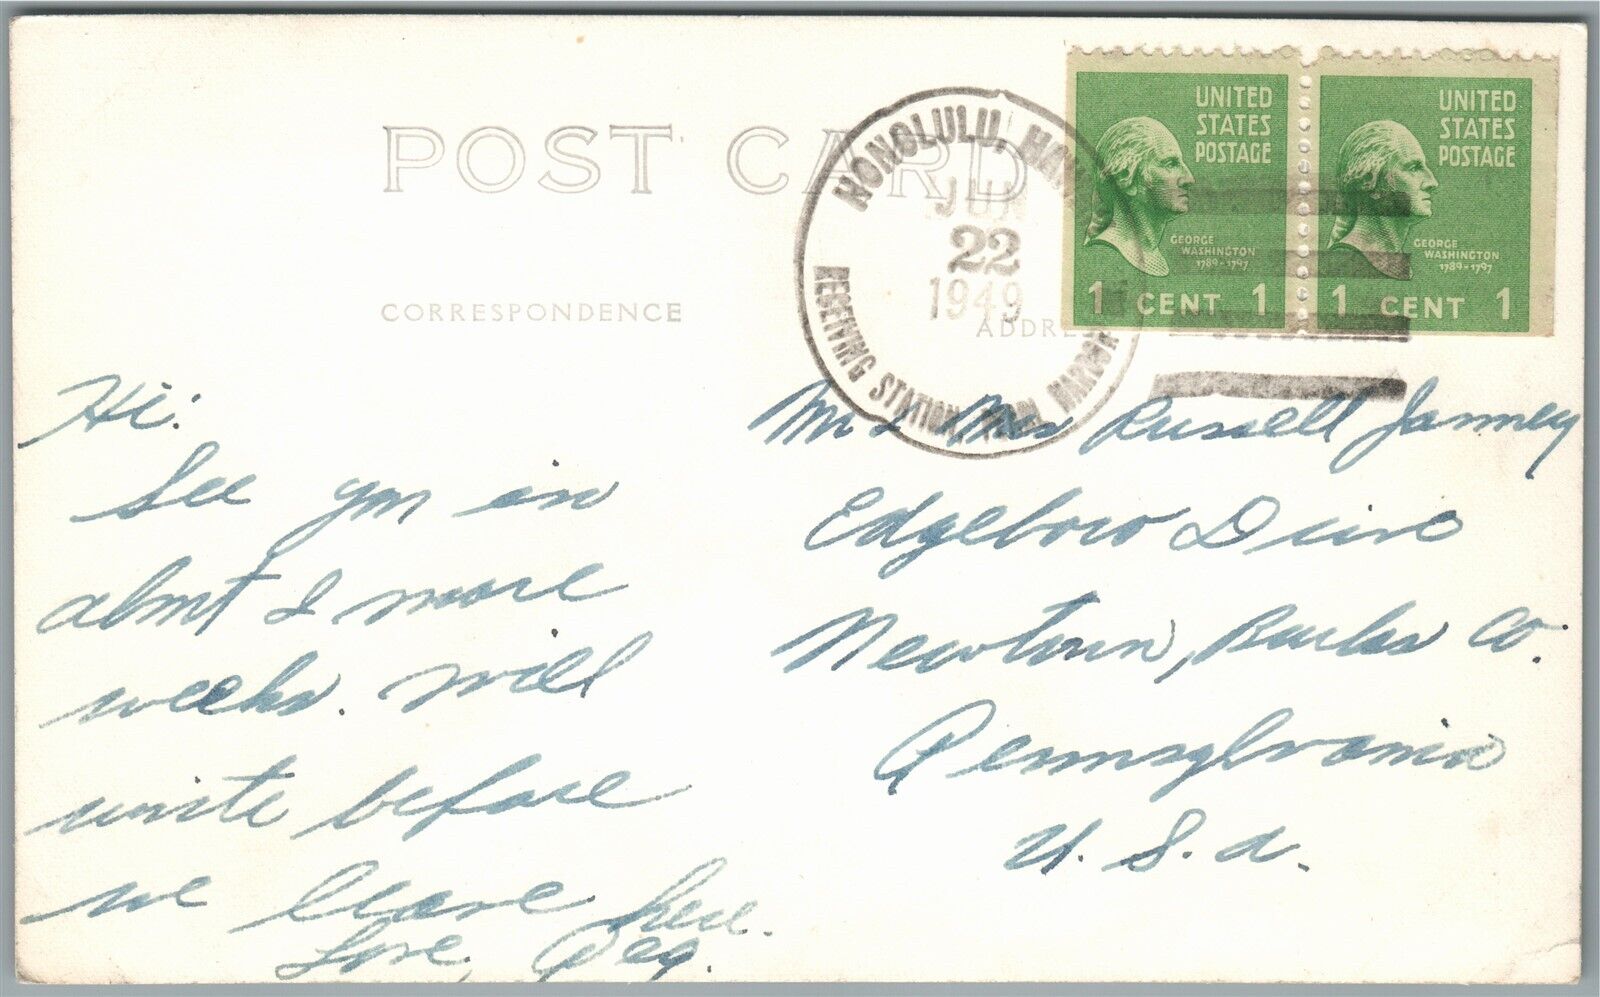 POST CARD
HONOLULU, HAWAII
JUN
22
1949
RECEIVING STATION, PEARL HARBOR
UNITED
STATES
POSTAGE
GEORGE
WASHINGTON
1789-1797
1 CENT 1
UNITED
STATES
POSTAGE
GEORGE
WASHINGTON
1789-1797
1 CENT 1
CORRESPONDENCE
ADDRESS
Hi:
See you in
about 2 more
weeks. Will
write before
we leave here.
Love, Peg.
Mr & Mrs Russell Janney
Edgeboro Drive
Newtown, Bucks Co.
Pennsylvania
U.S.A.